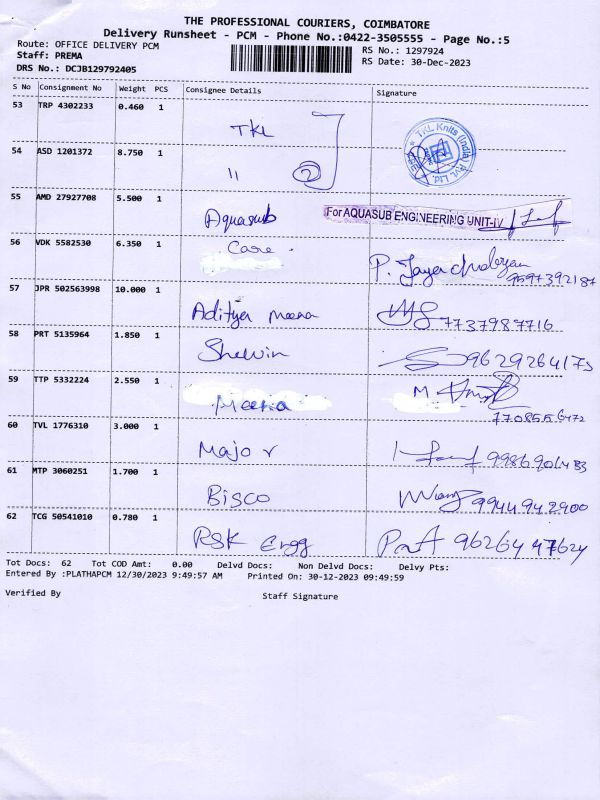 THE PROFESSIONAL COURIERS, COIMBATORE
Delivery Runsheet - PCM - Phone No.:0422-3505555 - Page No.:5
Route: OFFICE DELIVERY PCM RS No.: 1297924
Staff: PREMA RS Date: 30-Dec-2023
DRS No.: DCJB129792405
S No Consignment No Weight PCS Consignee Details Signature
53 TRP 4302233 0.460 1 TKL TKL Knits (India) Pvt. Ltd.
54 ASD 1201372 8.750 1 " 2
55 AMD 27927708 5.500 1 Aquasub For AQUASUB ENGINEERING UNIT-IV
56 VDK 5582530 6.350 1 Care P. 9597392187
57 JPR 502563998 10.000 1 Aditya meena 7737987716
58 PRT 5135964 1.850 1 Sherwin 9629264173
59 TTP 5332224 2.550 1 Meena M 7708556472
60 TVL 1776310 3.000 1 Major
61 MTP 3060251 1.700 1 Bisco 9944942900
62 TCG 50541010 0.780 1 RSK Engg 9626447624
Tot Docs: 62 Tot COD Amt: 0.00 Delvd Docs: Non Delvd Docs: Delvy Pts:
Entered By :PLATHAPCM 12/30/2023 9:49:57 AM Printed On: 30-12-2023 09:49:59
Verified By Staff Signature